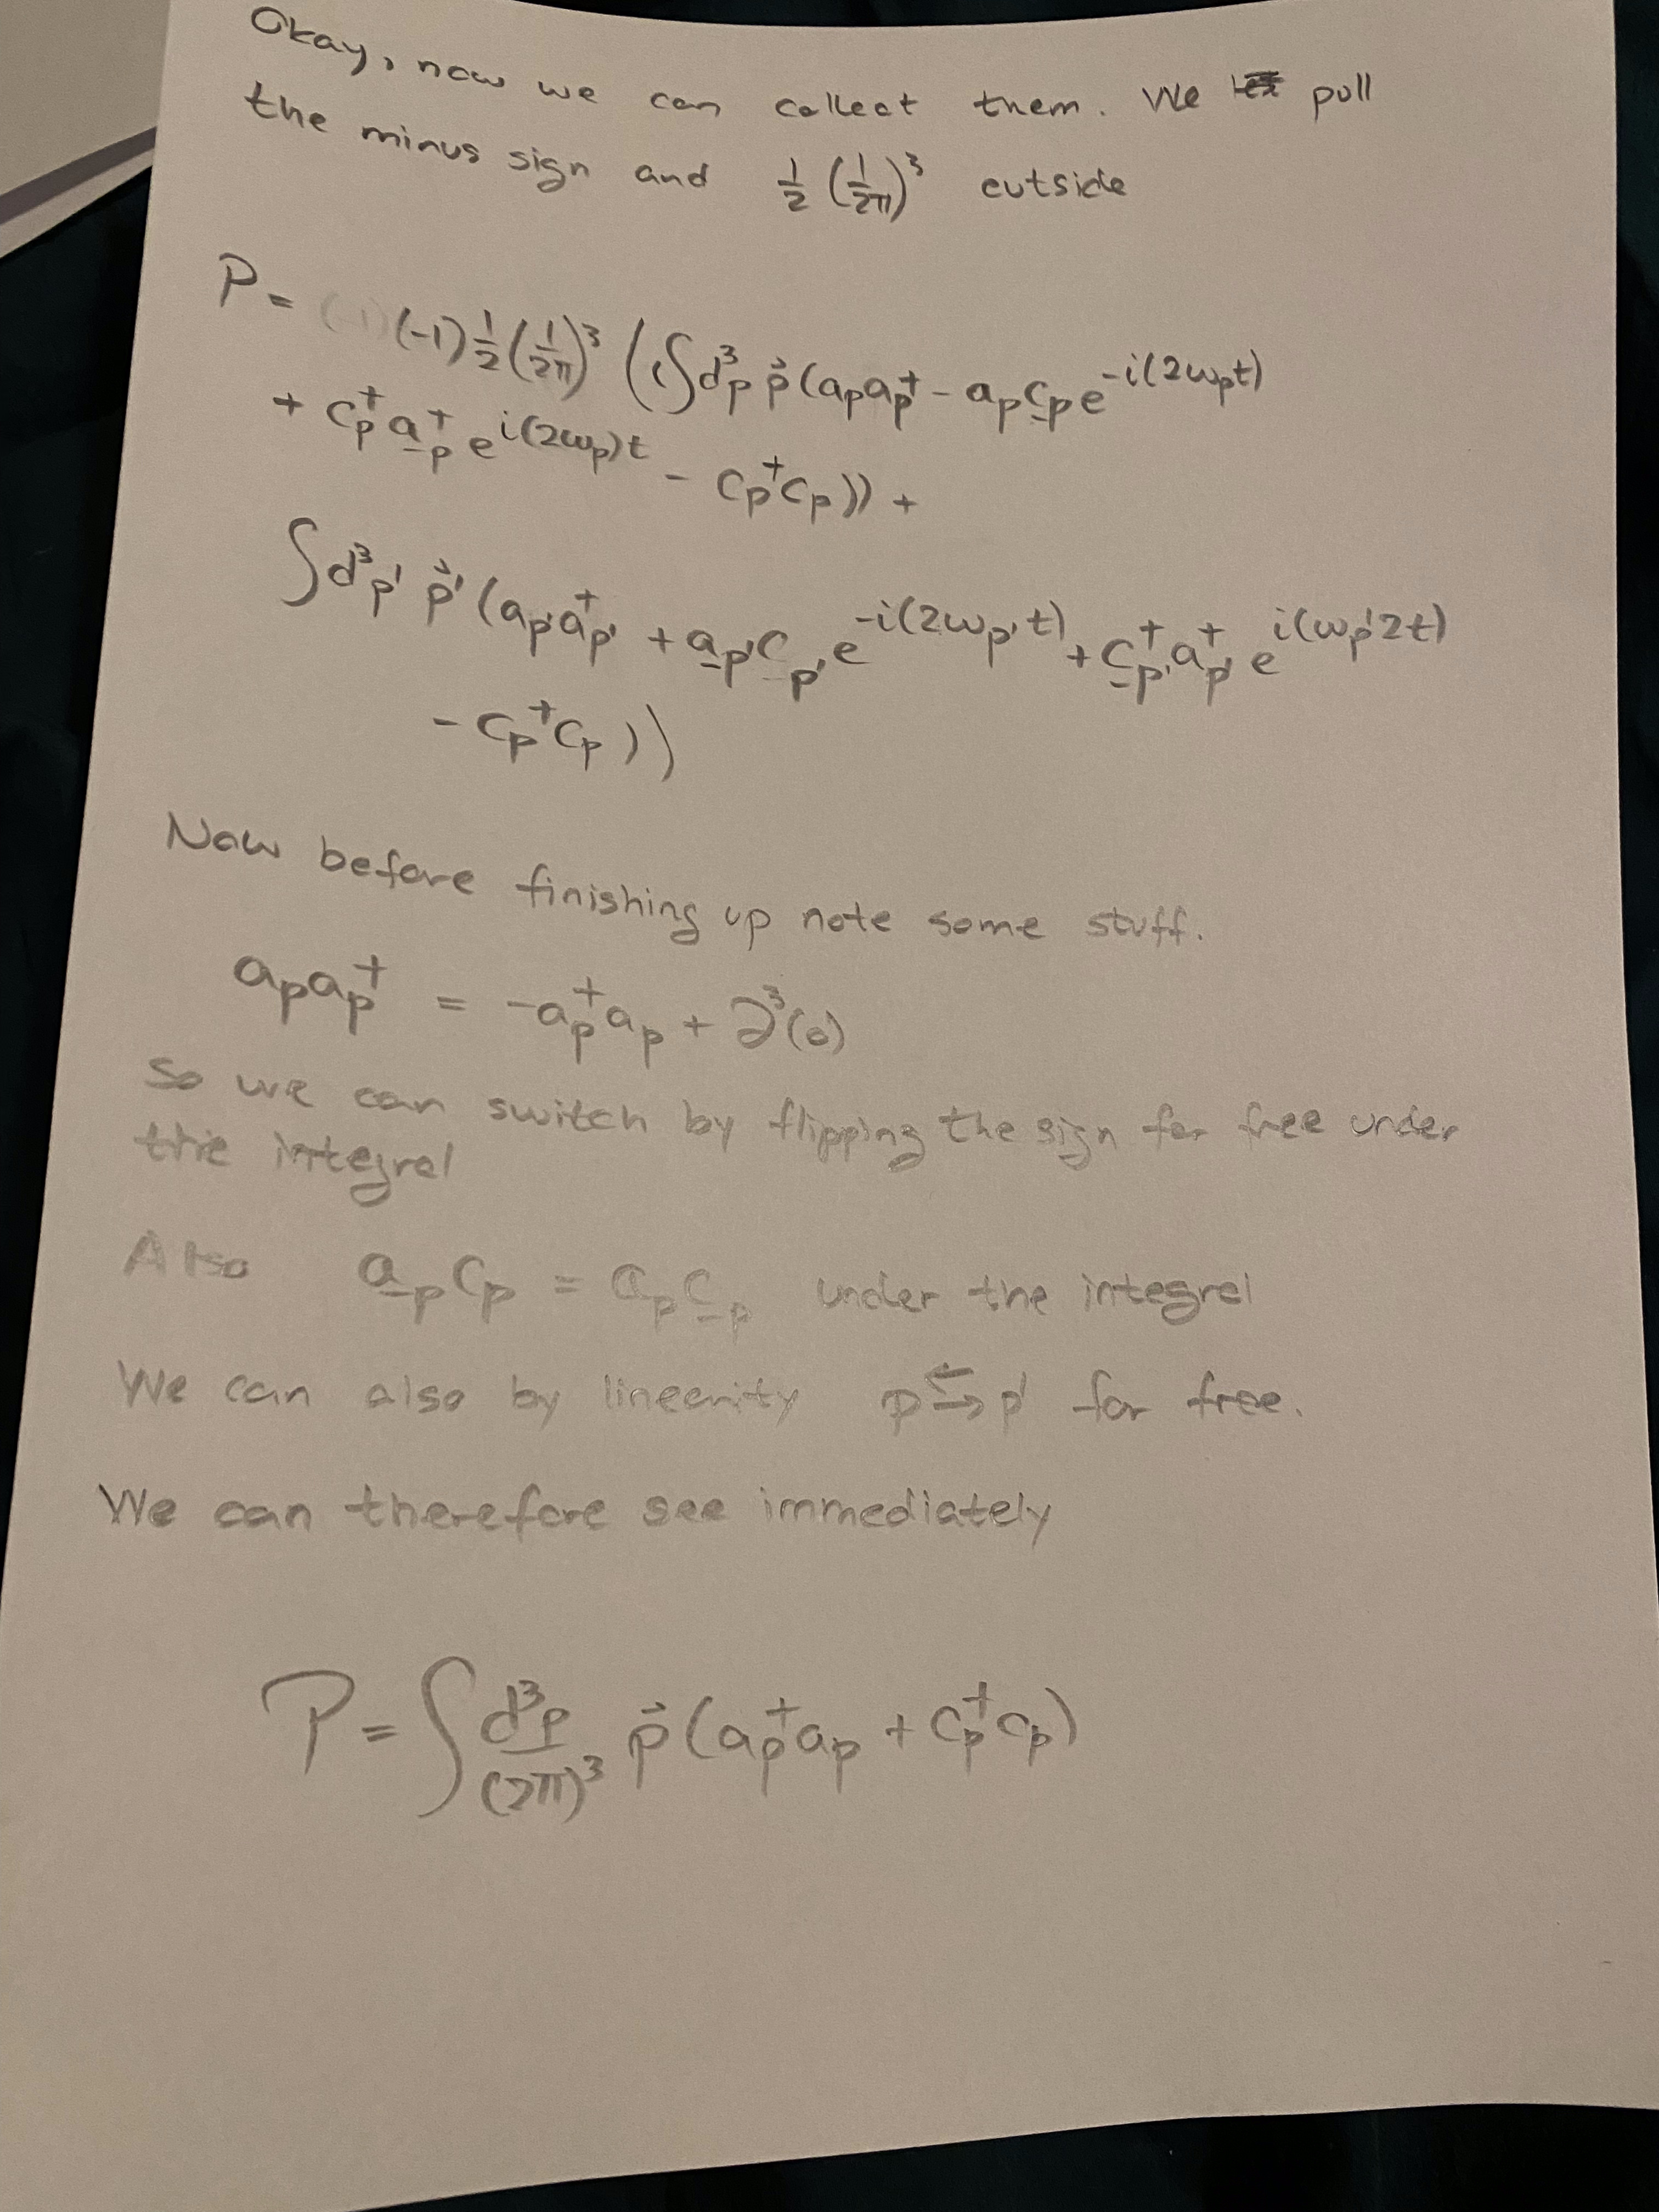 Okay, now we can collect them. We pull
the minus sign and ½ (1/2π)³ outside
P = (-1) (-1) ½ (1/2π)³ ( (∫d³p p⃗ (aₚaₚ† - aₚc₋ₚ e^{-i(2ωₚt)}
+ cₚ† a₋ₚ† e^{i(2ωₚ)t} - cₚ†cₚ)) +
∫d³p' p⃗' (aₚ'aₚ'† + a₋ₚ'c₋ₚ' e^{-i(2ωₚ't)} + c₋ₚ'†aₚ'† e^{i(ωₚ'2t)}
- cₚ†cₚ))
Now before finishing up note some stuff.
aₚaₚ† = -aₚ†aₚ + ∂³(0)
So we can switch by flipping the sign for free under
the integral
Also a₋ₚcₚ = aₚc₋ₚ under the integral
We can also by linearity p ⇆ p' for free.
We can therefore see immediately
P = ∫ d³p/(2π)³ p⃗ (aₚ†aₚ + cₚ†cₚ)